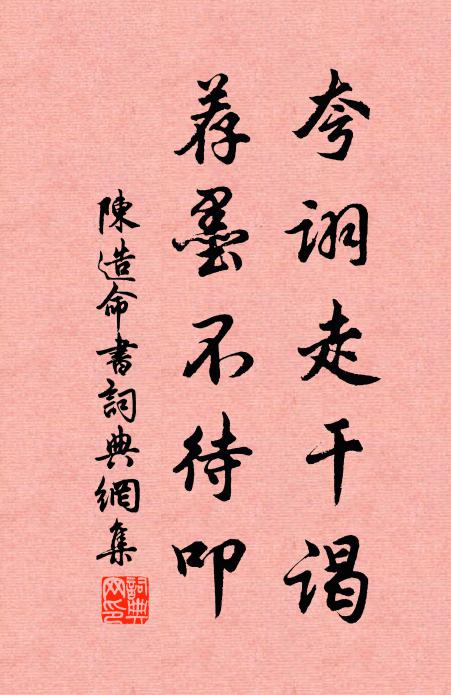 夸詡走干谒
荐墨不待叩
陳造命書詞典網集
詞典网印